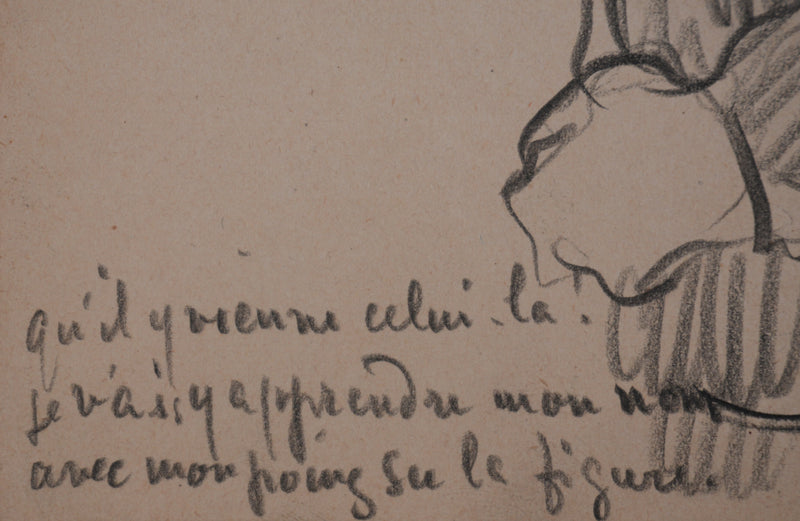 qu'il y vienne celui-là !
je vais y apprendre mon nom
avec mon poing su la figure.